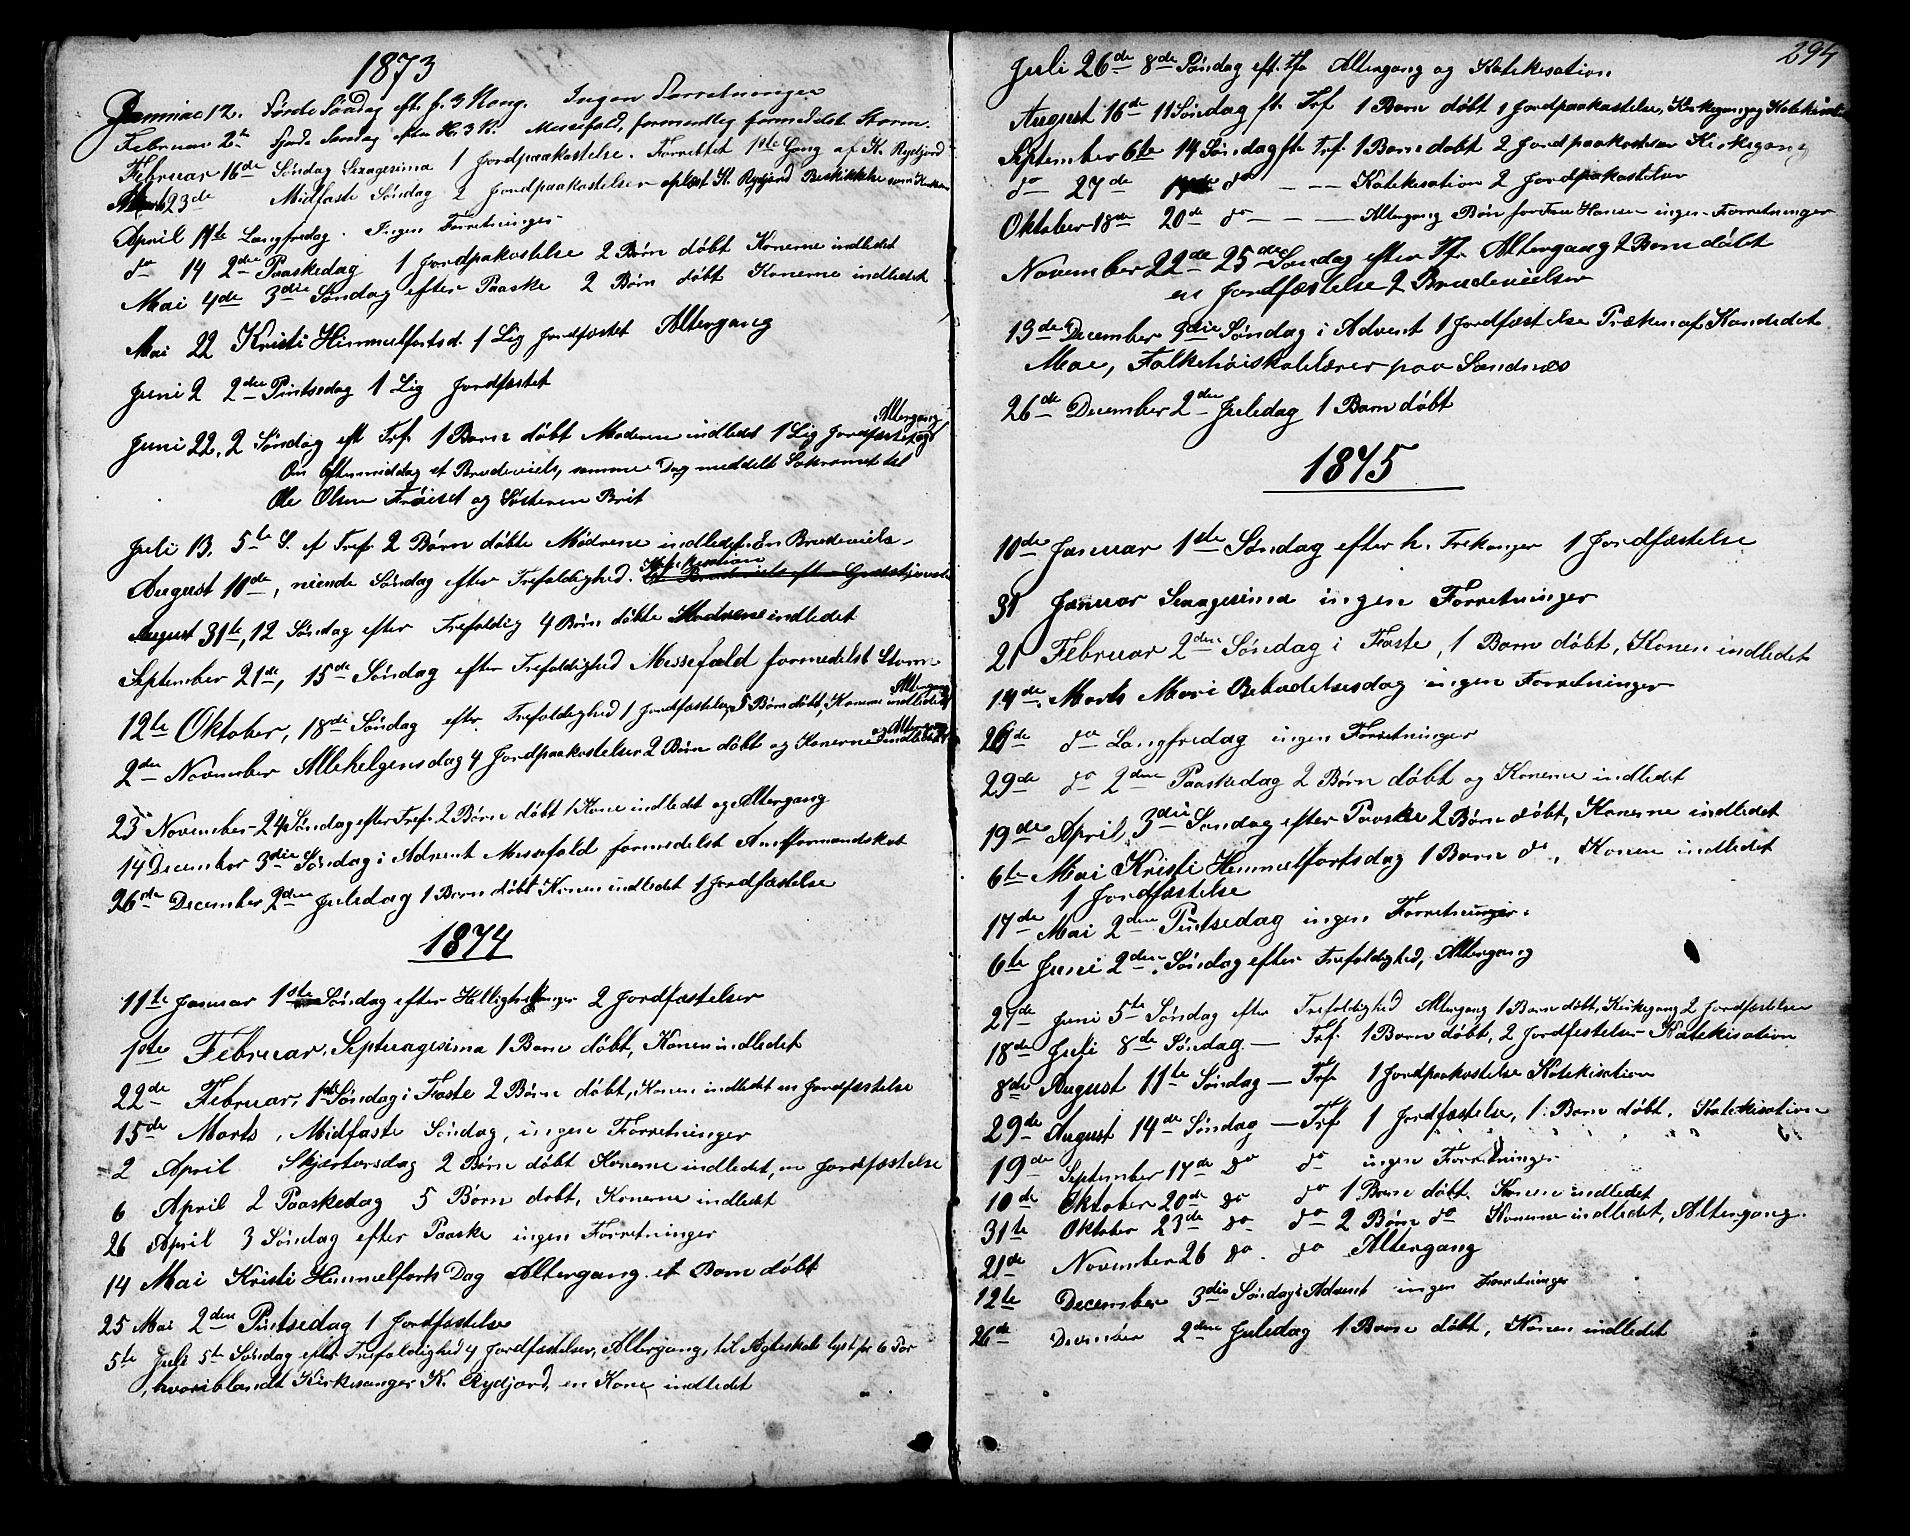 1873
Januar 12. Første Søndag eft. h. 3 Kong. Ingen Forretninger
Februar 2de Fjerde Søndag efter H. 3 K. Messefald, formentlig formedelst Storm.
Februar 16de Søndag Sexagesima 1 Jordpaakastelse. Forrettet 1ste Gang af K. Rydjord
Marts 23de Midfaste Søndag 2 Jordpaakastelser oplæst K. Rydjord Beskikkelse som
April 11te Langfredag. Ingen Forretninger
do 14 2den Paaskedag 1 Jordpakastelse 2 Børn døbt Konerne indledet
Mai 4de 3die Søndag efter Paaske 2 Børn døbt Konerne indledet
Mai 22 Kristi Himmelfartsd. 1 Lig Jordfæstet Altergang
Juni 2 2den Pintsedag 1 Lig Jordfæstet
Altergang
Juni 22, 2 Søndag eft Trf. 1 Barn døbt Moderen indledet 1 Lig Jordfæstet og
Om Eftermiddag et Brudeviels, samme Dag meddelt Sakramet til
Ole Olsen Frøiset og Søsteren Brit
Juli 13. 5te S. ef Tref. 2 Børn døbte Mødrene indledet. En Brudeviels.
Katekisation
August 10de, niende Søndag efter Trefoldighed.
August 31te, 12 Søndag efter Trefoldig 4 Børn døbte Mødrene indledet
September 21de, 15de Søndag efter Trefoldighed Messefald formedelst Storm
Altergang
12te Oktober, 18de Søndag efter Trefoldighed 1 Jordfæstelse, 5 Børn døbt, Konerne indledet
og Altergang
2den November Allehelgensdag 4 Jordpaakastelser 2 Børn døbt og Konerne indledet
23 November - 24 Søndag efter Tref. 2 Børn døbt 1 Kone indledet og Altergang
14 December 3die Søndag i Advent Messefald formedelst Amtformandskab
26de December 2den Juledag 1 Barn døbt Konen indledet 1 Jordfæstelse
1874
11te Januar 1ste Søndag efter Helligtrekonger 2 Jordfæstelser
1ste Februar, Septuagesima 1 Barn døbt, Konen indledet
22de Februar, 1ste Søndag i Faste 2 Børn døbt, Konen indledet en Jordfæstelse
15de Marts, Midfaste Søndag, ingen Forretninger
2 April Skjærtorsdag 2 Børn døbt Konerne indledet, en Jordfæstelse
6 April 2 Paaskedag 5 Børn døbt, Konerne indledet
26 April 3 Søndag efter Paaske ingen Forretninger
14 Mai Kristi Himmelfarts Dag Altergang et Barn døbt
25 Mai 2den Pintsedag 1 Jordfæstelse
5te Juli 5te Søndag efter Trefoldighed 4 Jordfæstelser, Altergang, til Ægteskab lyst for 6 Par
hvoriblandt Kirkesanger K. Rydjord, en Kone indledet
294
Juli 26de 8de Søndag eft. Trf. Altergang og Katekisation
August 16de 11 Søndag ft. Trf. 1 Barn døbt 1 Jordpaakastelse, Kirkegang og Katekisation
September 6te 14 Søndag ft. Trf. 1 Barn døbt 2 Jordpaakastelser Kirkegang
do 27de 17de do — — Katekisation 2 Jordpakastelser
Oktober 18de 20de do — — — Altergang Bøn for Frue Hansen ingen Forretninger
November 22de 25de Søndag efter Trf. Altergang 2 Børn døbt
en Jordfæstelse 2 Brudevielser
13de December 3die Søndag i Advent 1 Jordfæstelse Præken af Kandidat
Moe, Folkehøiskolelærer paa Sandnæs
26de December 2den Juledag 1 Barn døbt
1875
10de Januar 1ste Søndag efter h. Trekonger 1 Jordfæstelse
31 Januar Sexagesima ingen Forretninger
21 Februar 2den Søndag i Faste, 1 Barn døbt, Konen indledet
14de Marts Mari Bebudelsesdag ingen Forretninger
26de do Langfredag ingen Forretninger
29de do 2den Paaskedag 2 Børn døbt og Konerne indledet
19de April, 3die Søndag efter Paaske 2 Børn døbt, Konerne indledet
6te Mai Kristi Himmelfartsdag 1 Barn do, Konen indledet
1 Jordfæstelse
17de Mai 2den Pintsedag ingen Forretninger.
6te Juni 2den Søndag efter Trefoldighed, Altergang
27de Juni 5te Søndag efter Trefoldighed Altergang 1 Barn døbt, Kirkegang 2 Jordfæstelser
18de Juli 8de Søndag — Trf. 1 Barn døbt, 2 Jordfestelser Katekisation
8de August 11te Søndag — Trf. 1 Jordpaakastelse Katekisation
29de August 14de Søndag — Trf 1 Jordfæstelse, 1 Barn døbt, Katekisation
19de September 17de do do ingen Forretninger
10de Oktober 20de do do 1 Barn døbt. Konen indledet
31te Oktober 23de do do 2 Børn do Konerne indledet, Altergang.
21de November 26 do. do Altergang
12te December 3die Søndag i Advent ingen Forretninger
26de December 2den Juledag 1 Barn døbt, Konen indledet